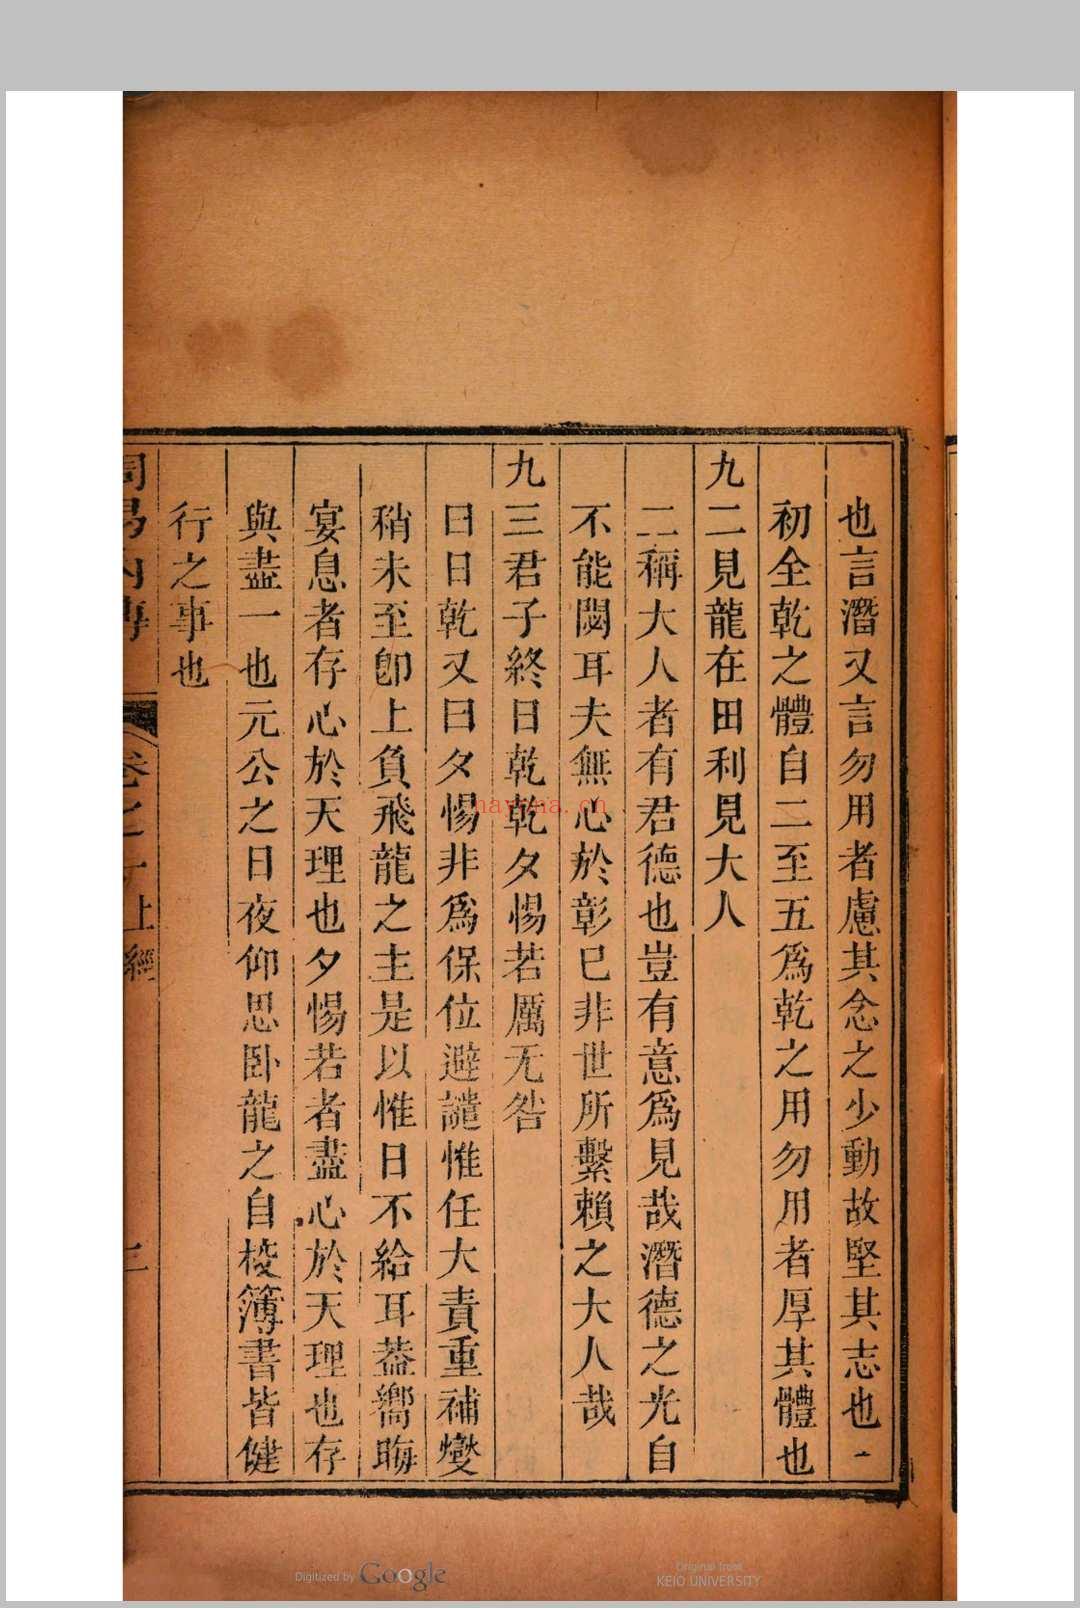 也言潛又言勿用者慮其念之少動故堅其志也
初全乾之體自二至五爲乾之用勿用者厚其體也
九二見龍在田利見大人
二稱大人者有君德也豈有意爲見哉潛德之光自
不能閟耳夫無心於彰已非世所繫賴之大人哉
九三君子終日乾乾夕惕若厲无咎
日日乾又曰夕惕非爲保位避譴惟任大責重補燮
稍未至卽上負飛龍之主是以惟日不給耳葢嚮晦
宴息者存心於天理也夕惕若者盡心於天理也存
與盡一也元公之日夜仰思臥龍之自校簿書皆健
行之事也
周易內傳 卷之一上經 三
nayona.cn
Digitized by Google
Original from
KEIO UNIVERSITY